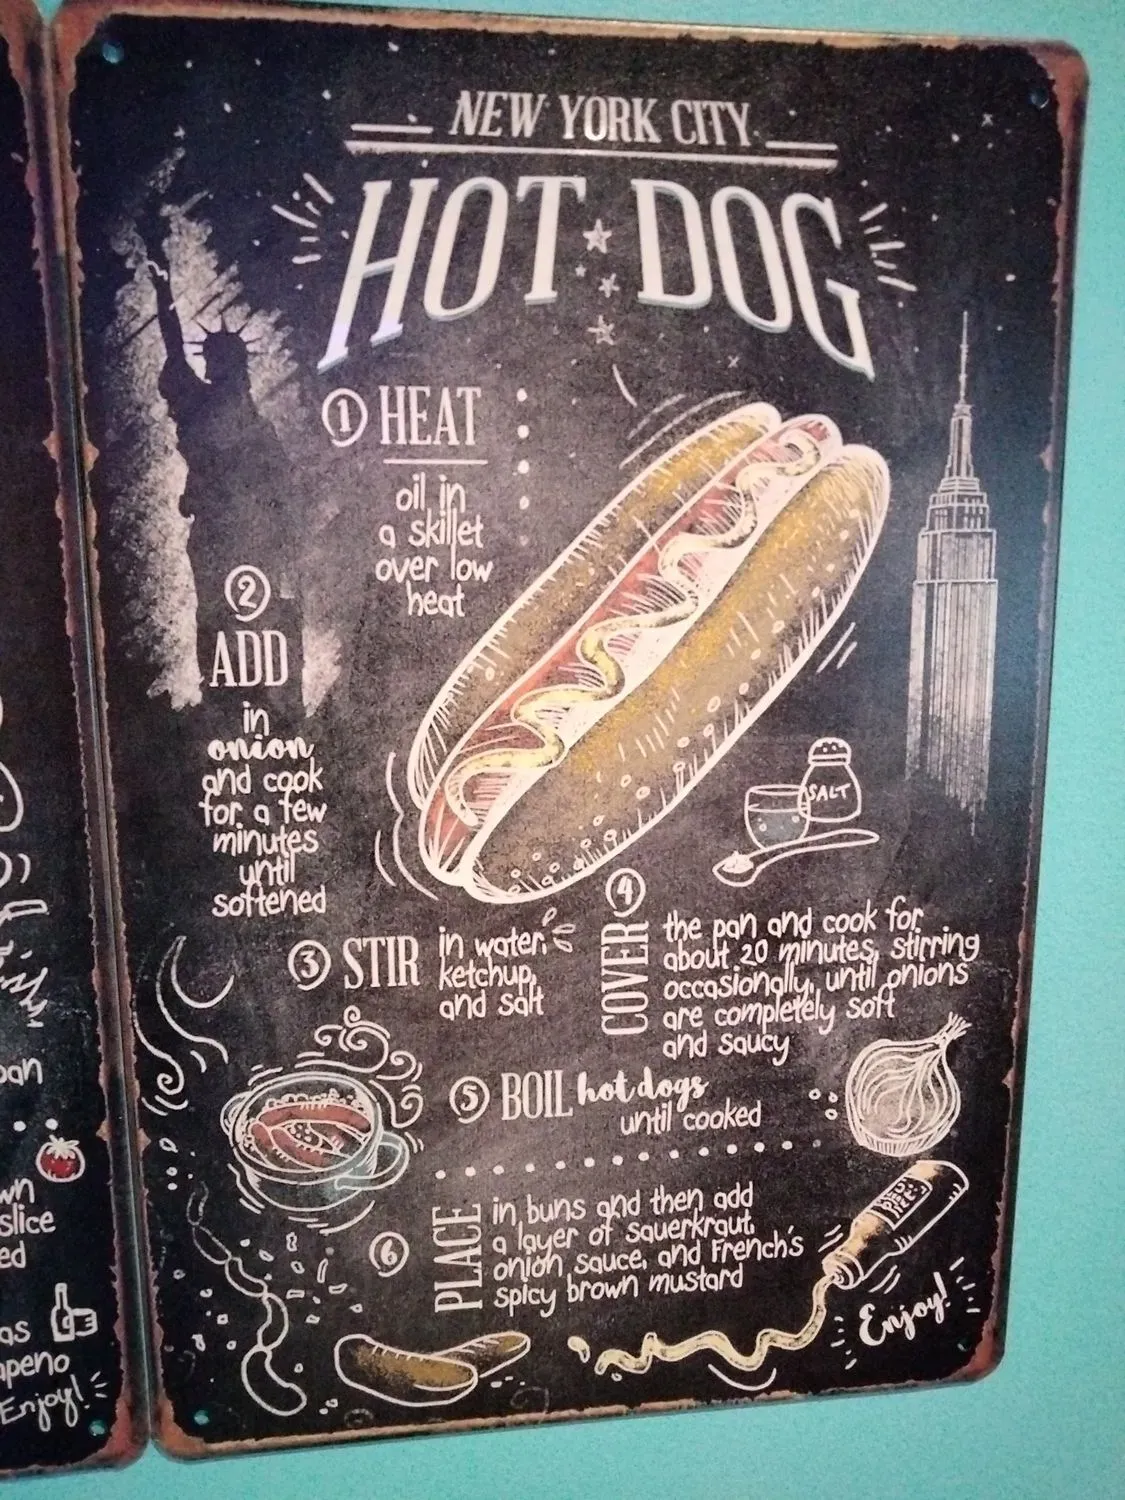 NEW YORK CITY
HOT DOG
1 HEAT
oil in
a skillet
over low
heat
2
ADD
in
onion
and cook
for a few
minutes
until
softened
3 STIR
in water,
ketchup,
and salt
SALT
4
COVER
the pan and cook for
about 20 minutes, stirring
occasionally, until onions
are completely soft
and saucy
5 BOIL hot dogs
until cooked
6
PLACE
in buns and then add
a layer of sauerkraut,
onion sauce, and French's
spicy brown mustard
Enjoy!
slice
peno
Enjoy!